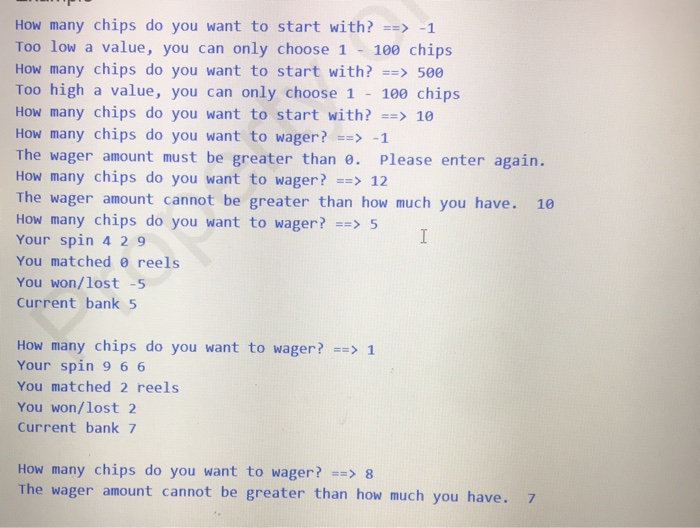 How many chips do you want to start with? ==> -1
Too low a value, you can only choose 1 - 100 chips
How many chips do you want to start with? ==> 500
Too high a value, you can only choose 1 - 100 chips
How many chips do you want to start with? ==> 10
How many chips do you want to wager? ==> -1
The wager amount must be greater than 0.  Please enter again.
How many chips do you want to wager? ==> 12
The wager amount cannot be greater than how much you have.  10
How many chips do you want to wager? ==> 5
Your spin 4 2 9
You matched 0 reels
You won/lost -5
Current bank 5
How many chips do you want to wager? ==> 1
Your spin 9 6 6
You matched 2 reels
You won/lost 2
Current bank 7
How many chips do you want to wager? ==> 8
The wager amount cannot be greater than how much you have.  7